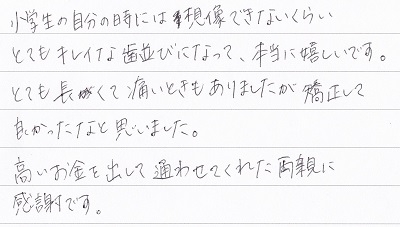 小学生の自分の時には想像できないくらい
とてもキレイな歯並びになって、本当に嬉しいです。
とても長くて痛いときもありましたが矯正して
良かったなと思いました。
高いお金を出して通わせてくれた両親に
感謝です。